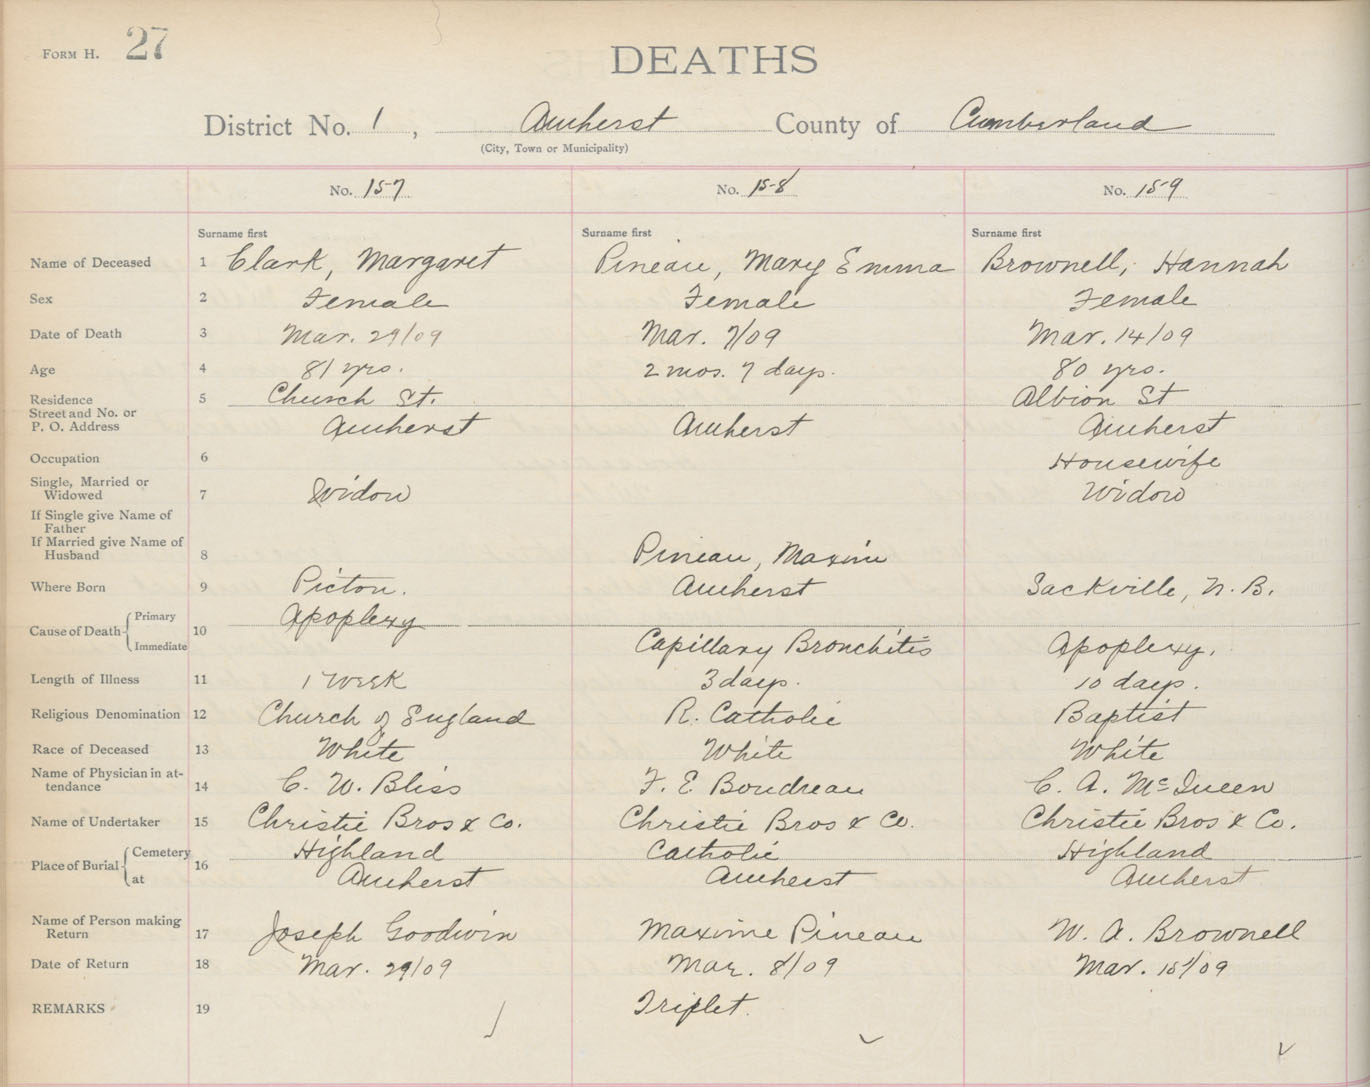 FORM H. 27
DEATHS
District No. 1, Amherst County of Cumberland
(City, Town or Municipality)
No. 157 No. 158 No. 159
Surname first Surname first Surname first
Name of Deceased 1 Clark, Margaret Pineau, Mary Emma Brownell, Hannah
Sex 2 Female Female Female
Date of Death 3 Mar. 29/09 Mar. 7/09 Mar. 14/09
Age 4 81 yrs. 2 mos. 7 days. 80 yrs.
Residence 5 Church St. Albion St
Street and No. or
P. O. Address Amherst Amherst Amherst
Occupation 6 Housewife
Single, Married or
Widowed 7 Widow Widow
If Single give Name of
Father
If Married give Name of
Husband 8 Pineau, Maxim
Where Born 9 Picton. Amherst Sackville, N. B.
Cause of Death Primary 10 Apoplexy
Immediate Capillary Bronchitis Apoplexy.
Length of Illness 11 1 week 3 days. 10 days.
Religious Denomination 12 Church of England R. Catholic Baptist
Race of Deceased 13 White White White
Name of Physician in at-
tendance 14 C. W. Bliss F. E. Boudreau C. A. McQueen
Name of Undertaker 15 Christie Bros & Co. Christie Bros & Co. Christie Bros & Co.
Place of Burial Cemetery 16 Highland Catholic Highland
at Amherst Amherst Amherst
Name of Person making
Return 17 Joseph Goodwin Maxime Pineau W. A. Brownell
Date of Return 18 Mar. 29/09 Mar. 8/09 Mar. 15/09
REMARKS 19 Triplet.